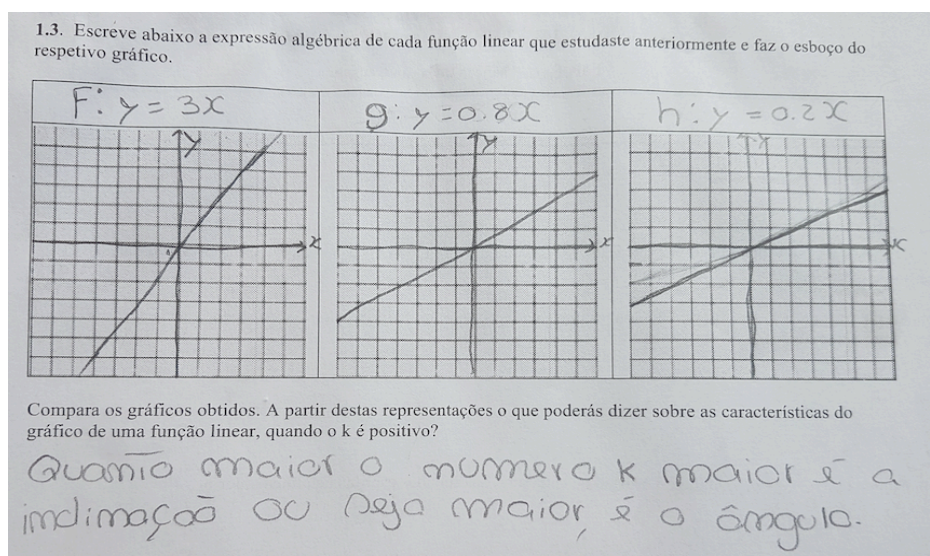 1.3. Escreve abaixo a expressão algébrica de cada função linear que estudaste anteriormente e faz o esboço do
respetivo gráfico.
F: y = 3x
g: y = 0.8x
h: y = 0.2x
y
y
y
x
x
x
Compara os gráficos obtidos. A partir destas representações o que poderás dizer sobre as características do
gráfico de uma função linear, quando o k é positivo?
Quanto maior o numero k maior é a
inclinaçaõ ou seja maior, é o ângulo.